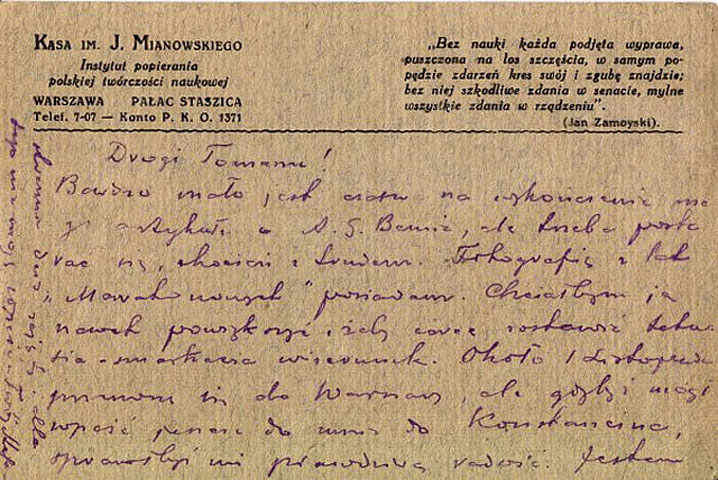 KASA IM. J. MIANOWSKIEGO
Instytut popierania
polskiej twórczości naukowej
WARSZAWA PAŁAC STASZICA
Telef. 7-07 — Konto P. K. O. 1371
„Bez nauki każda podjęta wyprawa,
puszczona na los szczęścia, w samym po-
pędzie zdarzeń kres swój i zgubę znajdzie;
bez niej szkodliwe zdania w senacie, mylne
wszystkie zdania w rządzeniu".
(Jan Zamoyski).
Drogi Tomaszu!
Bardzo mało jest czasu na wykończenie me
go artykułu o A. G. Bemie, ale trzeba posta
rać się, chociaż z trudem. Fotografię z lat
posiadam. Chciałbym ją
nawet powiększyć, żeby córce zostawić
smarkacza wizerunek. Około 1 Listopada
się do Warszawy, ale gdybyś mógł
wpaść jeszcze do mnie do Konstancina,
sprawiłbyś mi prawdziwą radość. Jestem